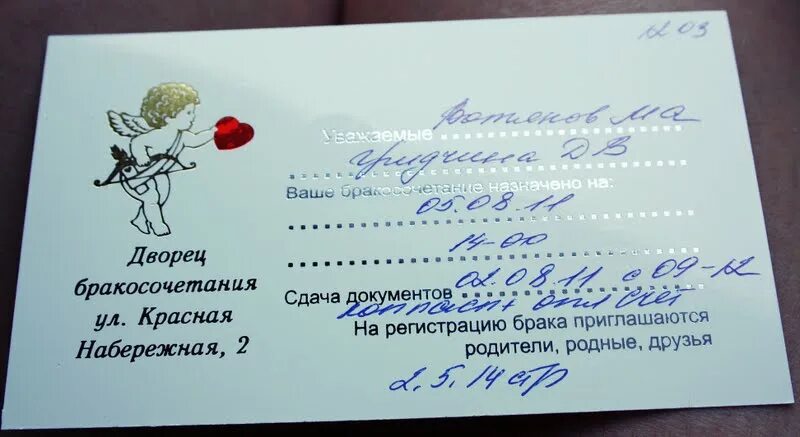 12 03
Уважаемые Вотяков МА
Гридчина ДВ
Ваше бракосочетание назначено на:
05.08.11
14-00
Сдача документов 02.08.11 с 09-12
коп паспт опл счёт
На регистрацию брака приглашаются
родители, родные, друзья
2.5.14 стр
Дворец
бракосочетания
ул. Красная
Набережная, 2